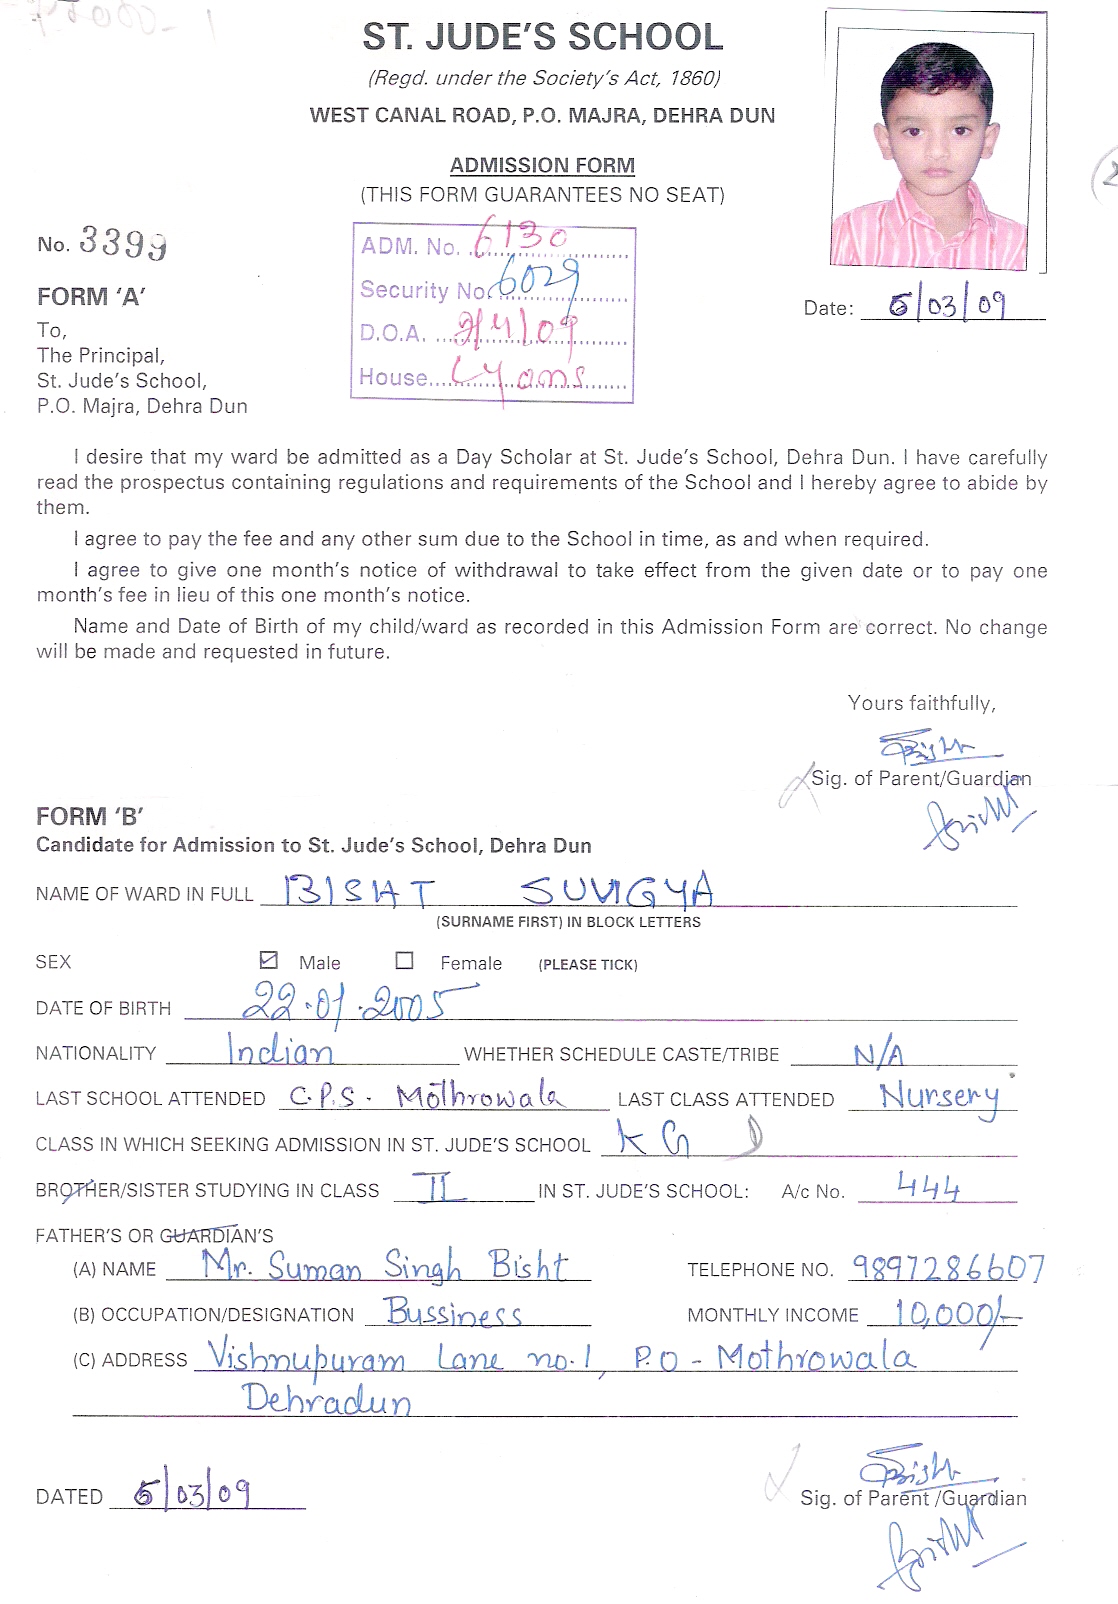 ST. JUDE'S SCHOOL
(Regd. under the Society's Act, 1860)
WEST CANAL ROAD, P.O. MAJRA, DEHRA DUN
ADMISSION FORM
(THIS FORM GUARANTEES NO SEAT)
No. 3399
ADM. No. 6130
Security No. 6029
D.O.A. 2/4/09
House Lyons
Date: 5/03/09
FORM 'A'
To,
The Principal,
St. Jude's School,
P.O. Majra, Dehra Dun
I desire that my ward be admitted as a Day Scholar at St. Jude's School, Dehra Dun. I have carefully
read the prospectus containing regulations and requirements of the School and I hereby agree to abide by
them.
I agree to pay the fee and any other sum due to the School in time, as and when required.
I agree to give one month's notice of withdrawal to take effect from the given date or to pay one
month's fee in lieu of this one month's notice.
Name and Date of Birth of my child/ward as recorded in this Admission Form are correct. No change
will be made and requested in future.
Yours faithfully,
Bisht
Sig. of Parent/Guardian
FORM 'B'
Candidate for Admission to St. Jude's School, Dehra Dun
NAME OF WARD IN FULL BISHT SUVIGYA
(SURNAME FIRST) IN BLOCK LETTERS
SEX Male Female (PLEASE TICK)
DATE OF BIRTH 22.01.2005
NATIONALITY Indian WHETHER SCHEDULE CASTE/TRIBE N/A
LAST SCHOOL ATTENDED C.P.S. Mothrowala LAST CLASS ATTENDED Nursery
CLASS IN WHICH SEEKING ADMISSION IN ST. JUDE'S SCHOOL KG
BROTHER/SISTER STUDYING IN CLASS II IN ST. JUDE'S SCHOOL: A/c No. 444
FATHER'S OR GUARDIAN'S
(A) NAME Mr. Suman Singh Bisht TELEPHONE NO. 9897286607
(B) OCCUPATION/DESIGNATION Bussiness MONTHLY INCOME 10,000/-
(C) ADDRESS Vishnupuram Lane no.1, P.O - Mothrowala
Dehradun
DATED 5/03/09
Bisht
Sig. of Parent /Guardian